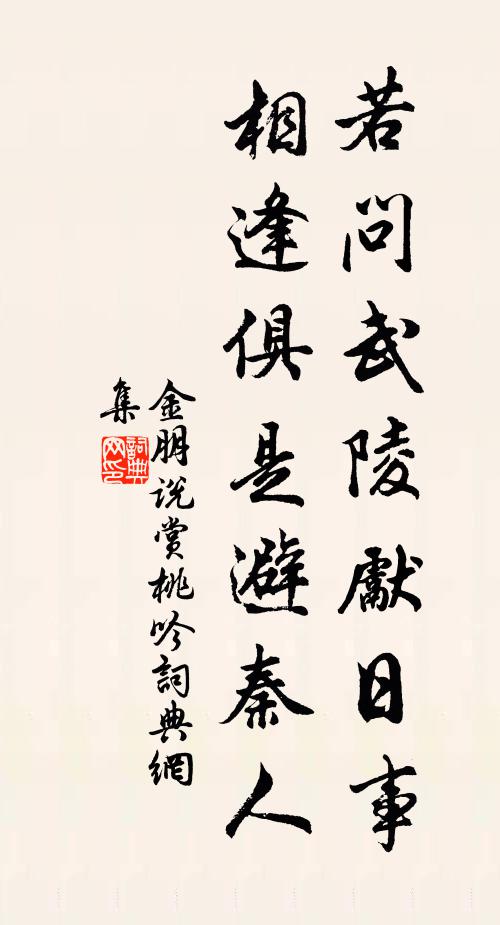 若問武陵獻日事
相逢俱是避秦人
金朋說賞桃吟詞典網
集
詞典
网印